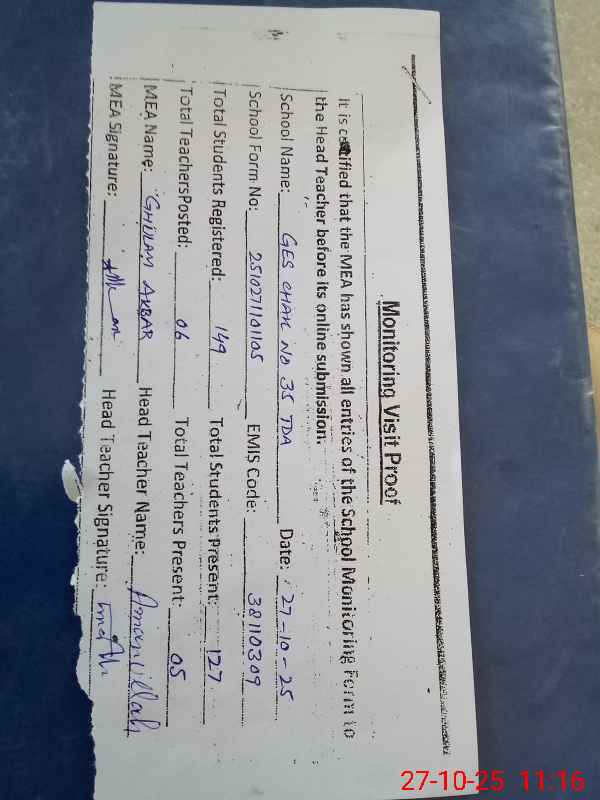 Monitoring Visit Proof
It is certified that the MEA has shown all entries of the School Monitoring Form to
the Head Teacher before its online submission.
School Name: GES CHAK NO 35 TDA Date: 27-10-25
School Form No: 2510271101105 EMIS Code: 38110309
Total Students Registered: 149 Total Students Present: 127
Total TeachersPosted: 06 Total Teachers Present: 05
MEA Name: GHULAM AKBAR Head Teacher Name: Amanullah
MEA Signature: Head Teacher Signature:
27-10-25 11:16